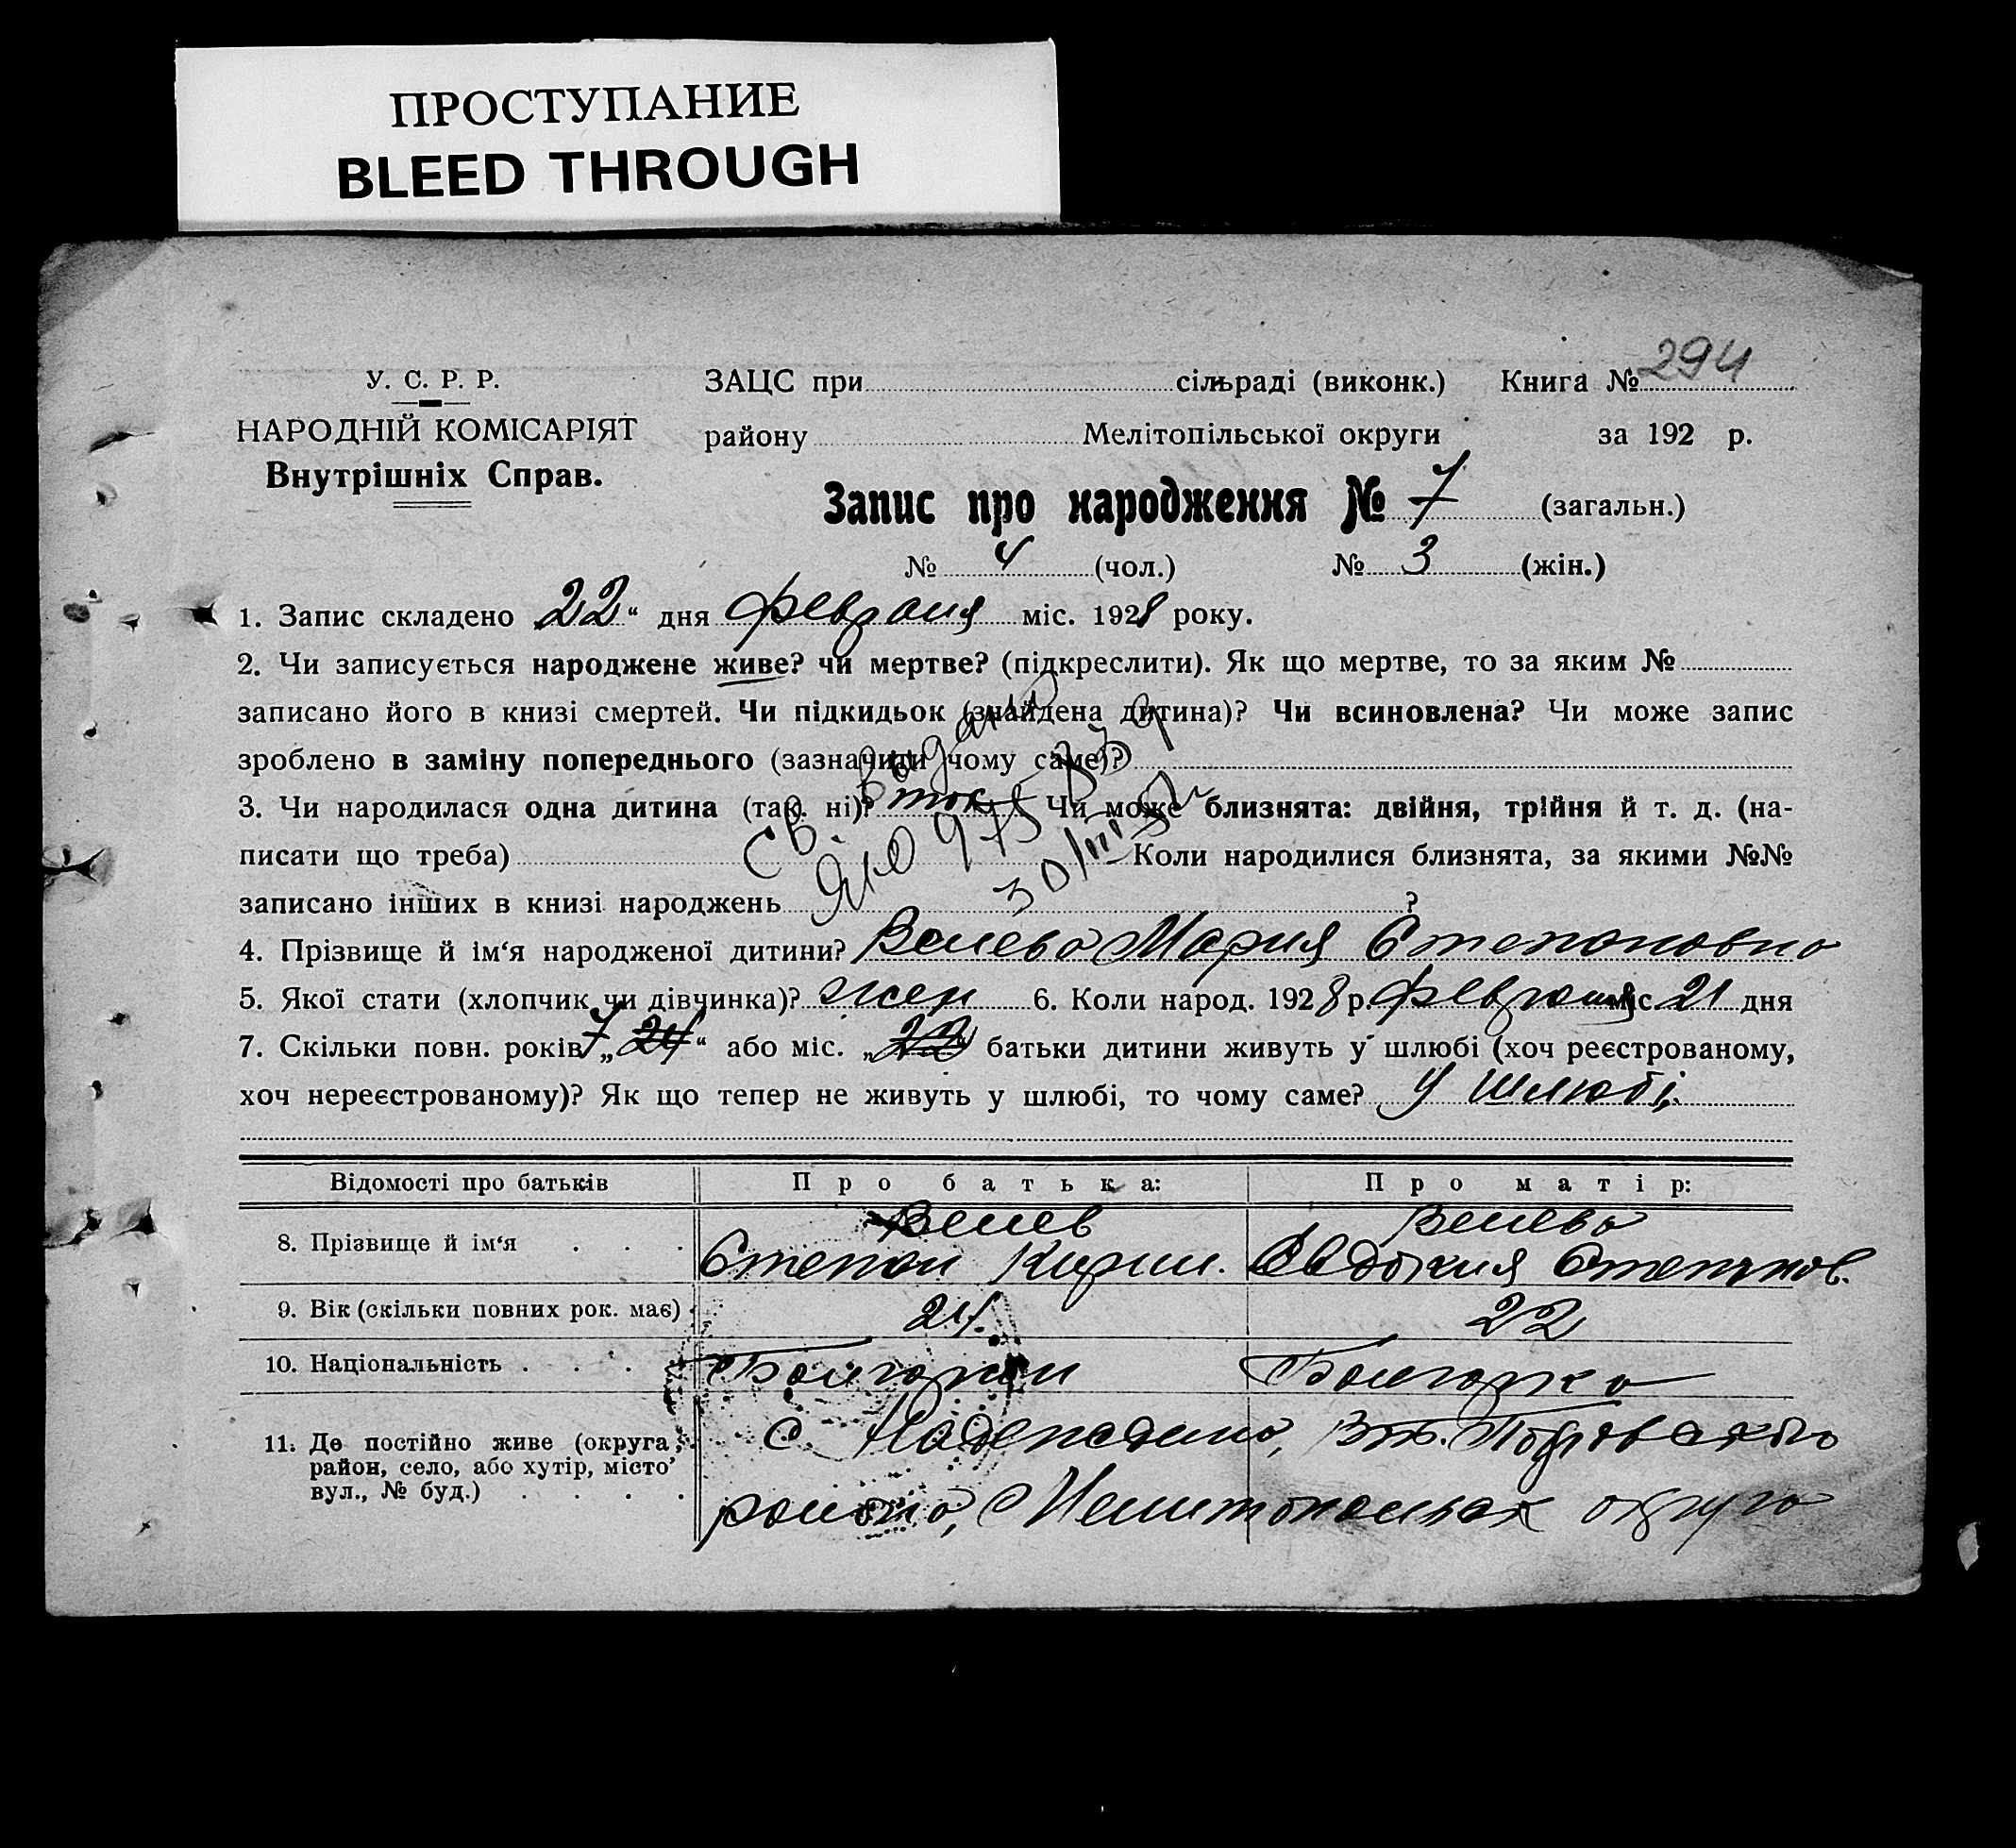 ПРОСТУПАНИЕ
BLEED THROUGH
294
У. С. Р. Р.
НАРОДНІЙ КОМІСАРІЯТ
Внутрішніх Справ.
ЗАЦС при сільраді (виконк.) Книга №
району Мелітопільської округи за 192 р.
Запис про народження № 7 (загальн.)
№ 4 (чол.) № 3 (жін.)
1. Запис складено 22“ дня февраля міс. 1928 року.
2. Чи записується народжене живе? чи мертве? (підкреслити). Як що мертве, то за яким №
записано його в книзі смертей. Чи підкидьок (знайдена дитина)? Чи всиновлена? Чи може запис
зроблено в заміну попереднього (зазначити чому саме)?
3. Чи народилася одна дитина (так. ні)? так Чи може близнята: двійня, трійня й т. д. (на-
писати що треба) Коли народилися близнята, за якими №№
записано інших в книзі народжень ?
Св. выдано
30/III
4. Прізвище й ім‘я народженої дитини? Велева Мария Степановна
5. Якої стати (хлопчик чи дівчинка)? жен 6. Коли народ. 1928 р. февраля міс. 21 дня
7. Скільки повн. років 7 „24“ або міс. „22“ батьки дитини живуть у шлюбі (хоч реєстрованому,
хоч нереєстрованому)? Як що тепер не живуть у шлюбі, то чому саме? У шлюбі
Відомості про батьків Про батька: Про матір:
8. Прізвище й ім‘я . . . Велев Степан Кирил. Велева Евдокия Степанов.
9. Вік (скільки повних рок. має) 24. 22
10. Національність . . . . Болгарин Болгарка
11. Де постійно живе (округа,
район, село, або хутір, місто
вул., № буд.) . . . .
с. Надеждино, Покровского
района, Мелитопольск округа